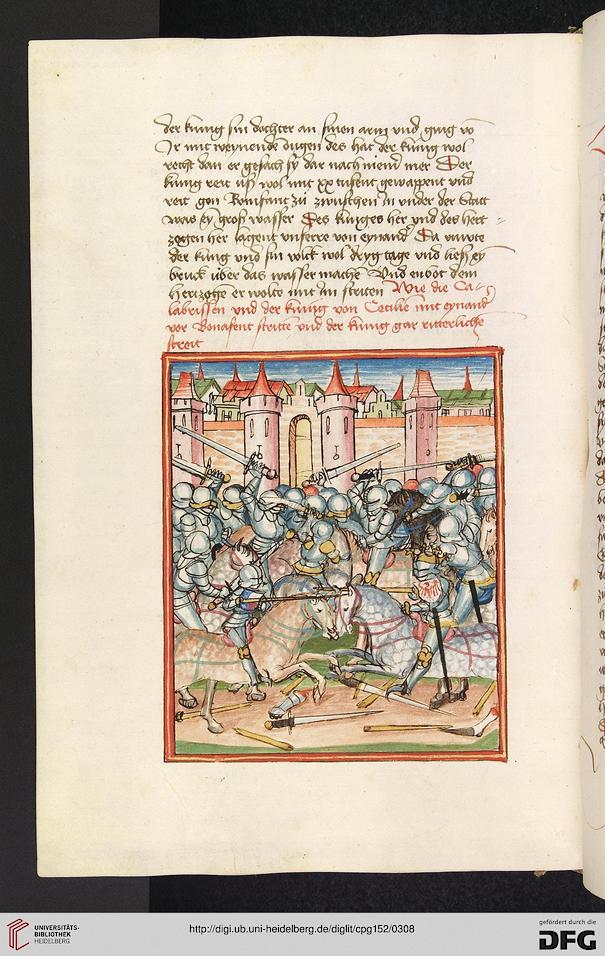 der kunig sin dochter an sinen arm vnd ging vō
Ir mit weynende ougen des hat der kunig wol
recht dan er gesach sy dar nach niem͂ mer Der
kunig reit uß wol mit xx tusent gewappent vnd
reit gon Bonifant zů zwuschen in vnder der Statt
was ey groß wasser Des kuniges her vnd des hert
zogen her lagent vnferre von eynand Da
der kunig vnd sin volck wol dryg tage vnd ließ ey
bruck uber das wasser mache Vnd enbot dem
hertzogē er wolte mit im striten Wie die Ca-
labrissen vnd der kunig von Cecilie mit eynand
vor Bonafent stritte vnd der kunig gar ritterliche
streit
UNIVERSITÄTS-
BIBLIOTHEK
HEIDELBERG
http://digi.ub.uni-heidelberg.de/diglit/cpg152/0308
gefördert durch die
DFG